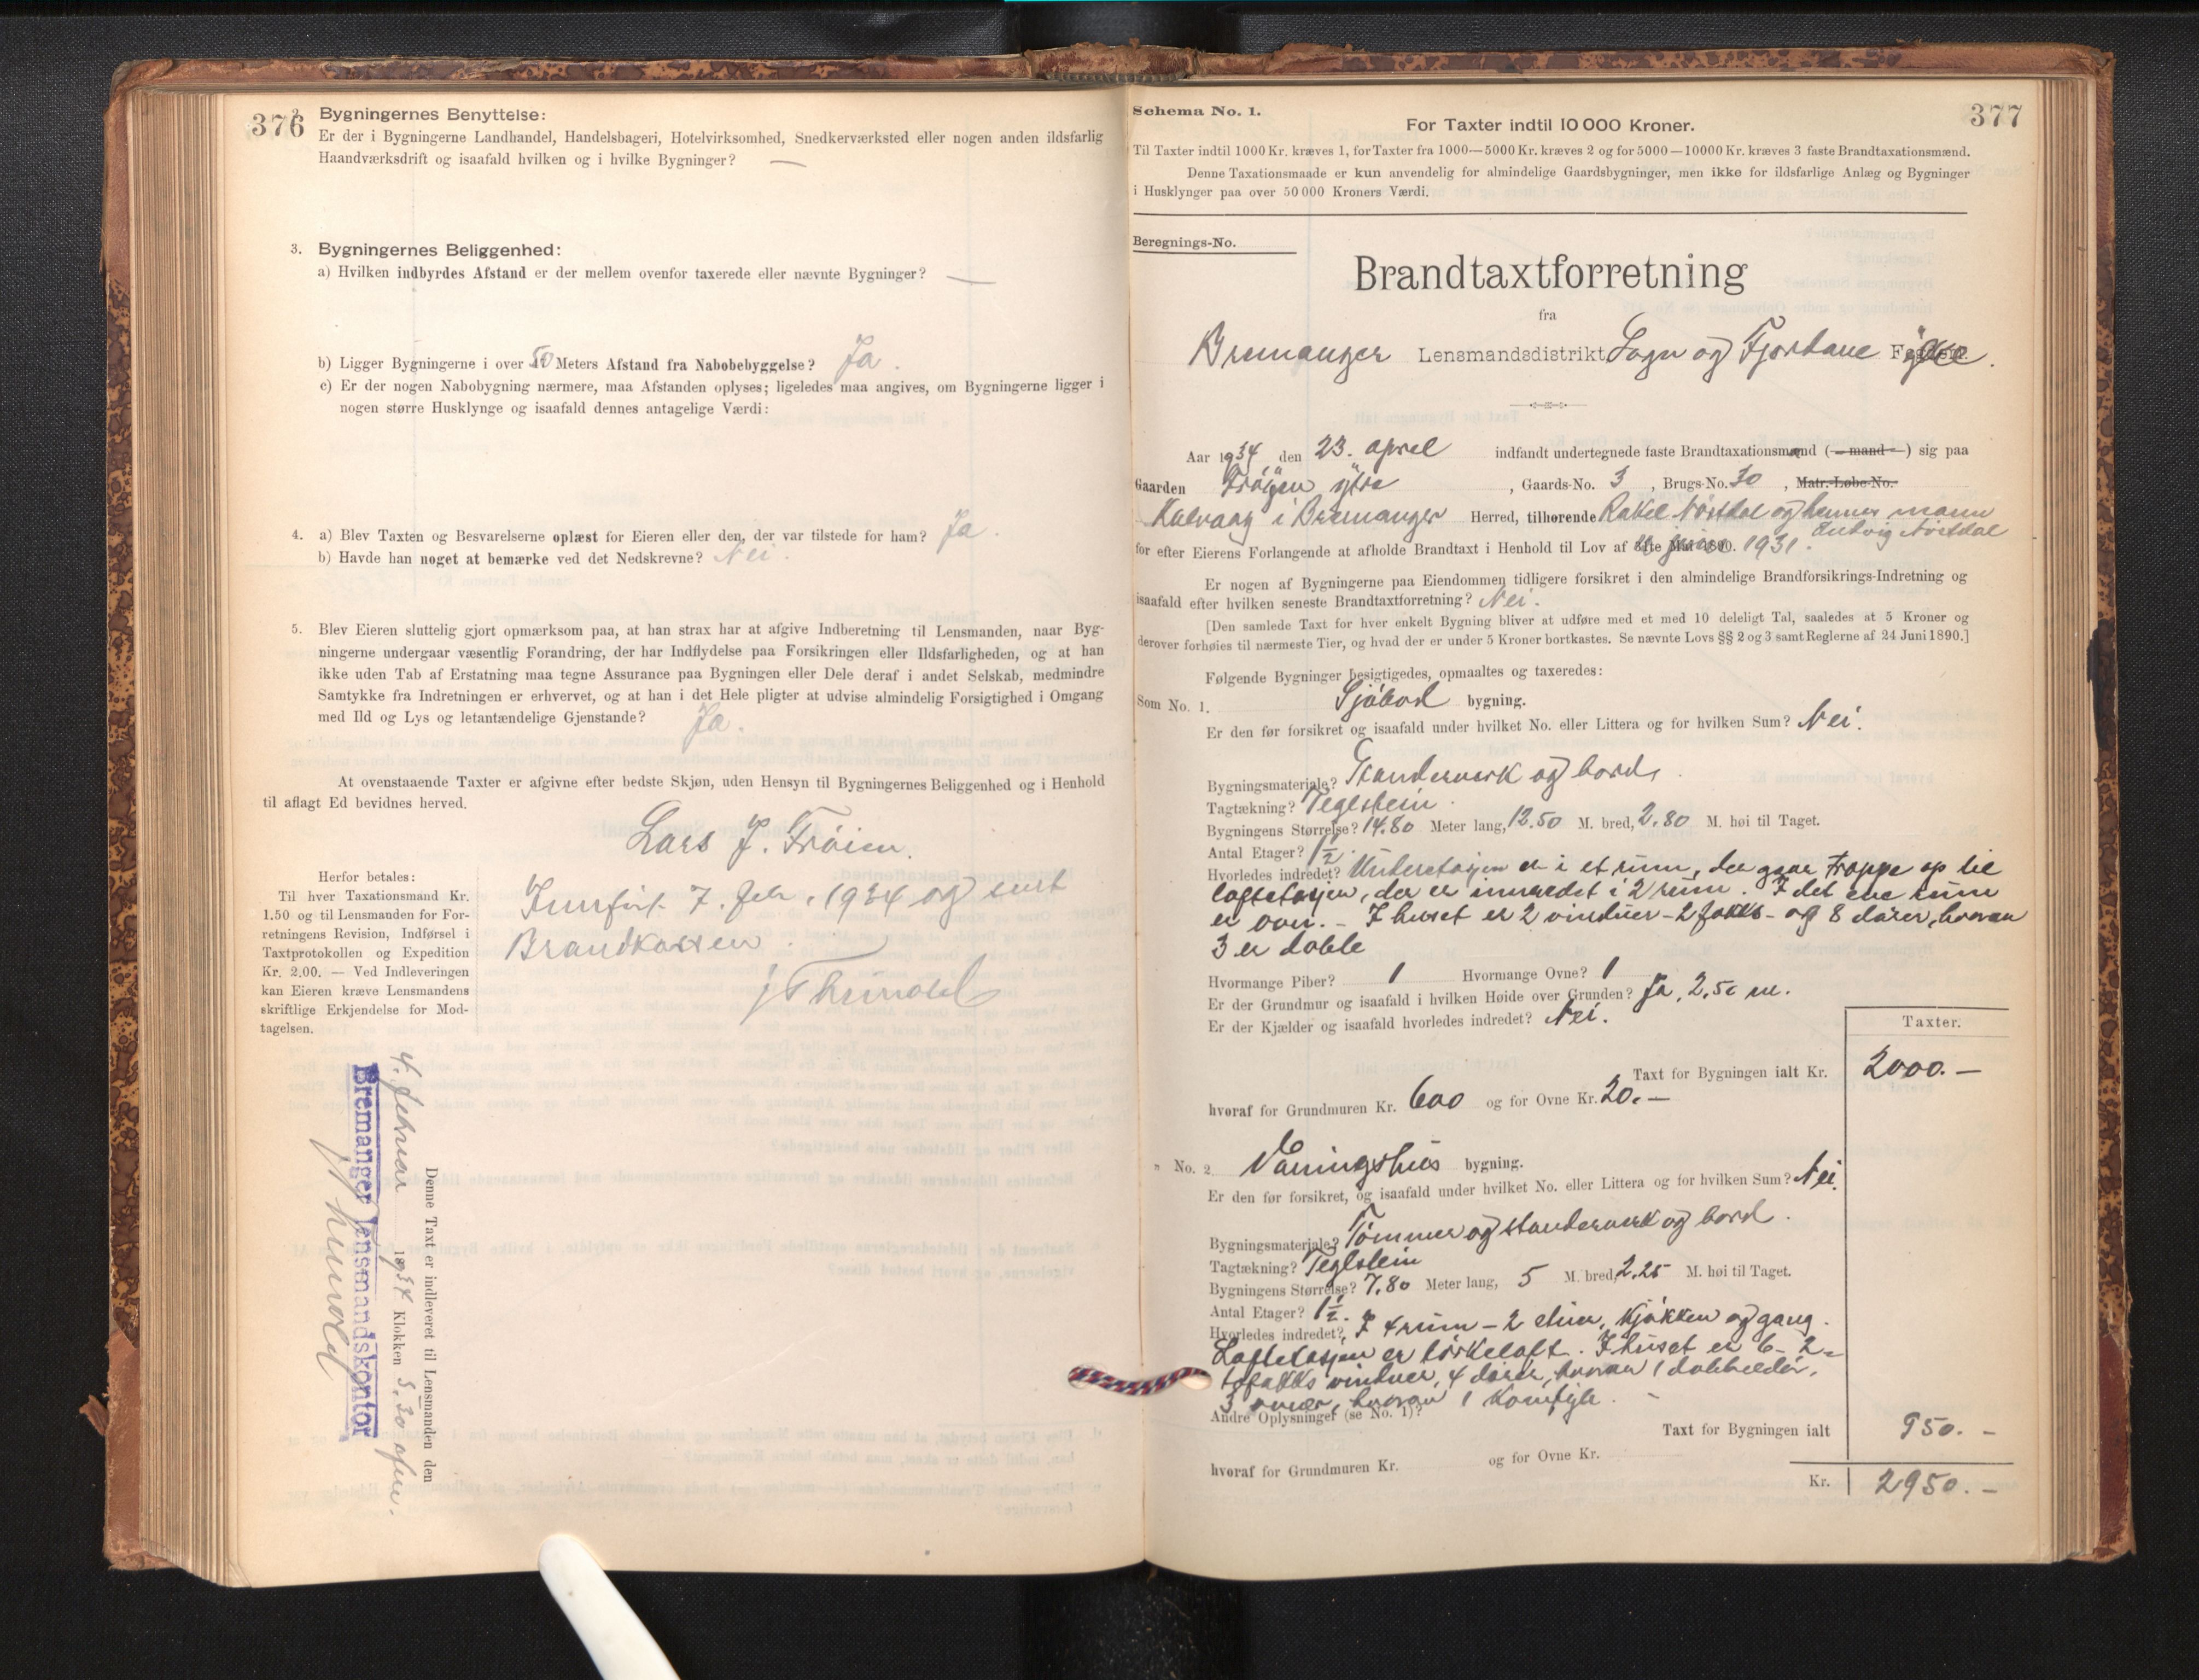 376
2. Bygningernes Benyttelse:
Er der i Bygningerne Landhandel, Handelsbageri, Hotelvirksomhed, Snedkerværksted eller nogen anden ildsfarlig
Haandværksdrift og isaafald hvilken og i hvilke Bygninger? —
3. Bygningernes Beliggenhed:
a) Hvilken indbyrdes Afstand er der mellem ovenfor taxerede eller nævnte Bygninger? —
b) Ligger Bygningerne i over 50 Meters Afstand fra Nabobebyggelse? Ja.
c) Er der nogen Nabobygning nærmere, maa Afstanden oplyses; ligeledes maa angives, om Bygningerne ligger i
nogen større Husklynge og isaafald dennes antagelige Værdi:
4. a) Blev Taxten og Besvarelserne oplæst for Eieren eller den, der var tilstede for ham? Ja.
b) Havde han noget at bemærke ved det Nedskrevne? Nei.
5. Blev Eieren sluttelig gjort opmærksom paa, at han strax har at afgive Indberetning til Lensmanden, naar Byg-
ningerne undergaar væsentlig Forandring, der har Indflydelse paa Forsikringen eller Ildsfarligheden, og at han
ikke uden Tab af Erstatning maa tegne Assurance paa Bygningen eller Dele deraf i andet Selskab, medmindre
Samtykke fra Indretningen er erhvervet, og at han i det Hele pligter at udvise almindelig Forsigtighed i Omgang
med Ild og Lys og letantændelige Gjenstande? Ja.
At ovenstaaende Taxter er afgivne efter bedste Skjøn, uden Hensyn til Bygningernes Beliggenhed og i Henhold
til aflagt Ed bevidnes herved.
Lars J. Frøien.
Herfor betales:
Til hver Taxationsmand Kr.
1.50 og til Lensmanden for For-
retningens Revision, Indførsel i
Taxtprotokollen og Expedition
Kr. 2.00. — Ved Indleveringen
kan Eieren kræve Lensmandens
skriftlige Erkjendelse for Mod-
tagelsen.
Innført 7. febr. 1934 og sendt
Brandkassen.
Denne Taxt er indleveret til Lensmanden den
4. februar 1934 Klokken 5.30 efm.
Bremanger lensmandskontor
377
Schema No. 1.
For Taxter indtil 10 000 Kroner.
Til Taxter indtil 1000 Kr. kræves 1, for Taxter fra 1000—5000 Kr. kræves 2 og for 5000—10000 Kr. kræves 3 faste Brandtaxationsmænd.
Denne Taxationsmaade er kun anvendelig for almindelige Gaardsbygninger, men ikke for ildsfarlige Anlæg og Bygninger
i Husklynger paa over 50 000 Kroners Værdi.
Beregnings-No.
Brandtaxtforretning
fra
Bremanger Lensmandsdistrikt, Sogn og Fjordane Fylke.
Aar 1934 den 23. april indfandt undertegnede faste Brandtaxationsmænd (—mand—) sig paa
Gaarden Frøien ytre, Gaards-No. 3, Brugs-No. 30, Matr.-Løbe-No.
Kalvaag i Bremanger Herred, tilhørende Rakel Nøstdal og hennes mann
Ludvig Nøstdal
for efter Eierens Forlangende at afholde Brandtaxt i Henhold til Lov af 1931.
Er nogen af Bygningerne paa Eiendommen tidligere forsikret i den almindelige Brandforsikrings-Indretning og
isaafald efter hvilken seneste Brandtaxtforretning? Nei.
[Den samlede Taxt for hver enkelt Bygning bliver at udføre med et med 10 deleligt Tal, saaledes at 5 Kroner og
derover forhøies til nærmeste Tier, og hvad der er under 5 Kroner bortkastes. Se nævnte Lovs §§ 2 og 3 samt Reglerne af 24 Juni 1890.]
Følgende Bygninger besigtigedes, opmaaltes og taxeredes:
Som No. 1. Sjøbod bygning.
Er den før forsikret og isaafald under hvilket No. eller Littera og for hvilken Sum? Nei.
Bygningsmateriale? Standerverk og bord.
Tagtækning? Teglstein.
Bygningens Størrelse? 14.80 Meter lang, 12.50 M. bred, 2.80 M. høi til Taget.
Antal Etager? 1½.
Hvorledes indredet? Underetasjen er i et rum, der gaar trappe op til
loftetasjen, der er innredet i 2 rum. I det ene rum
er ovn. – I huset er 2 vinduer – 2 fakks – og 8 dører, hvorav
3 er doble
Hvormange Piber? 1 Hvormange Ovne? 1
Er der Grundmur og isaafald i hvilken Høide over Grunden? Ja, 2,50 m.
Er der Kjælder og isaafald hvorledes indredet? Nei.
Taxter.
Taxt for Bygningen ialt Kr. 2000.—
hvoraf for Grundmuren Kr. 600 og for Ovne Kr. 20.—
" No. 2. Vaaningshus bygning.
Er den før forsikret, og isaafald under hvilket No. eller Littera og for hvilken Sum? Nei.
Bygningsmateriale? Tømmer og standerverk og bord.
Tagtækning? Teglstein
Bygningens Størrelse? 7.80 Meter lang, 5 M. bred, 2.25 M. høi til Taget.
Antal Etager? 1½.
Hvorledes indredet? I 4 rum – 2 stuer, kjøkken og gang.
Loftetasjen er tørkeloft. I huset er 6 – 2 –
fakks vinduer, 4 dører, hvorav 1 dobbeldør,
3 ovner, hvorav 1 komfyr.
Andre Oplysninger (se No. 1)?
Taxt for Bygningen ialt 950.–
hvoraf for Grundmuren Kr. og for Ovne Kr.
Kr. 2950.–